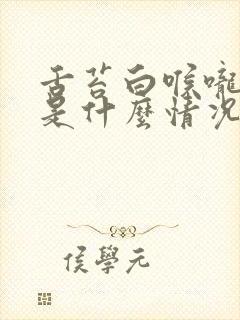 舌苔白喉嚨
是什麼情況
侯學元